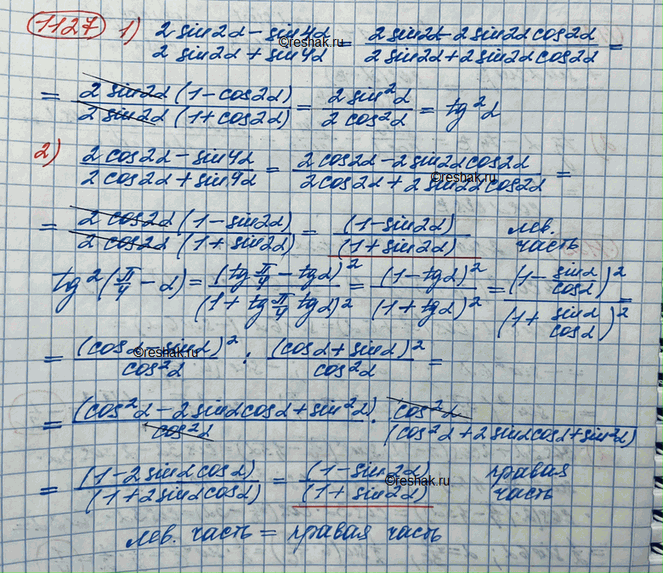 1127 1) (2 sin2α - sin4α)/(2 sin2α + sin4α) = (2 sin2α - 2 sin2α cos2α)/(2 sin2α + 2 sin2α cos2α) =
= (2 sin2α (1 - cos2α))/(2 sin2α (1 + cos2α)) = (2 sin²α)/(2 cos²α) = tg²α
2) (2 cos2α - sin4α)/(2 cos2α + sin4α) = (2 cos2α - 2 sin2α cos2α)/(2 cos2α + 2 sin2α cos2α) =
= (2 cos2α (1 - sin2α))/(2 cos2α (1 + sin2α)) = (1 - sin2α)/(1 + sin2α) лев. часть
tg²(π/4 - α) = (tg π/4 - tgα)²/(1 + tg π/4 tgα)² = (1 - tgα)²/(1 + tgα)² = (1 - sinα/cosα)²/(1 + sinα/cosα)² =
= (cosα - sinα)²/cos²α : (cosα + sinα)²/cos²α =
= (cos²α - 2 sinα cosα + sin²α)/cos²α · cos²α/(cos²α + 2 sinα cosα + sin²α)
= (1 - 2 sinα cosα)/(1 + 2 sinα cosα) = (1 - sin2α)/(1 + sin2α) правая часть
лев. часть = правая часть
©reshak.ru
©reshak.ru
©reshak.ru
©reshak.ru